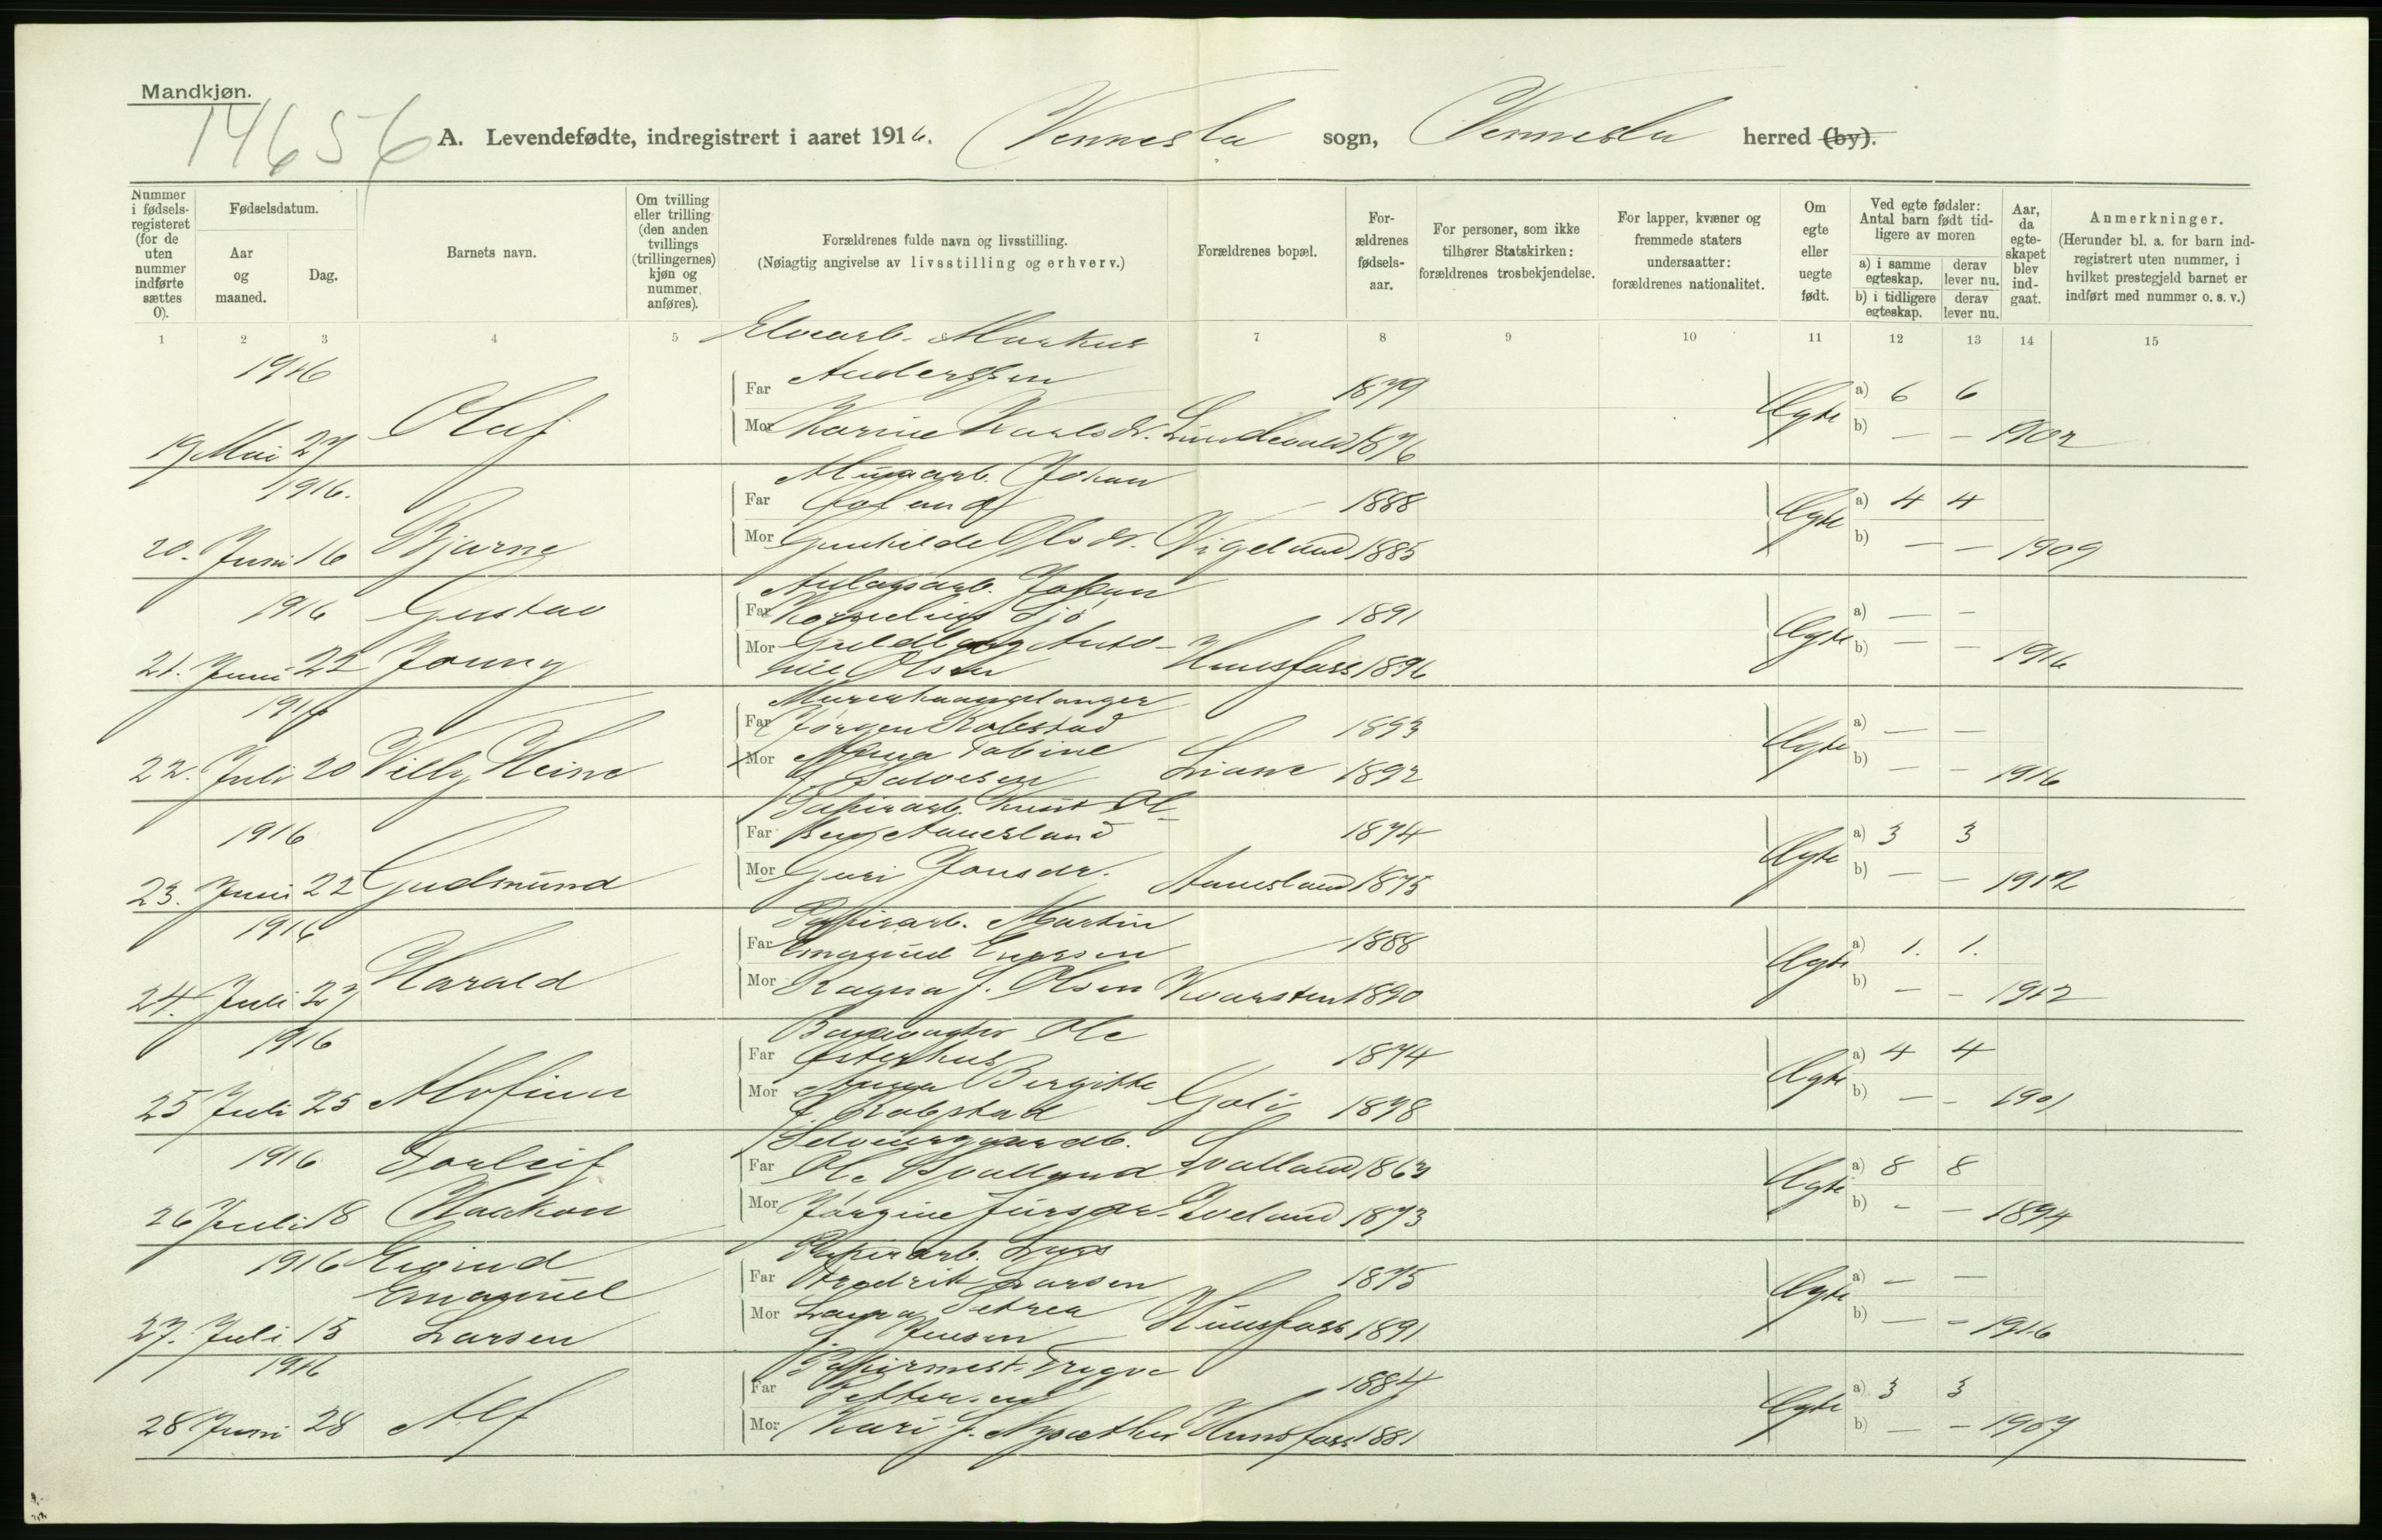 Mandkjøn.
14656
A. Levendefødte, indregistrert i aaret 1916. Vennesla sogn, Vennesla herred (by).
Nummer i fødsels-registeret (for de uten nummer indførte sættes 0).
Fødselsdatum.
Aar og maaned.
Dag.
Barnets navn.
Om tvilling eller trilling (den anden tvillings (trillingernes) kjøn og nummer anføres).
Forældrenes fulde navn og livsstilling.
(Nøiagtig angivelse av livsstilling og erhverv.)
Forældrenes bopæl.
For-ældrenes fødsels-aar.
For personer, som ikke tilhører Statskirken: forældrenes trosbekjendelse.
For lapper, kvæner og fremmede staters undersaatter: forældrenes nationalitet.
Om egte eller uegte født.
Ved egte fødsler: Antal barn født tid-ligere av moren
a) i samme egteskap.
derav lever nu.
b) i tidligere egteskap.
derav lever nu.
Aar, da egte-skapet blev ind-gaat.
Anmerkninger.
(Herunder bl. a. for barn ind-registrert uten nummer, i hvilket prestegjeld barnet er indført med nummer o. s. v.)
1 2 3 4 5 7 8 9 10 11 12 13 14 15
1916
19 Mai 27 Olaf
Elvearb. Markus
Far Anderssen 1879
Mor Karine Karlsdr. 1876
Ægte a) 6 6
b) — — 1902
1916.
20. Juni 16 Bjarne
Johan
Far 1888
Mor Gunhilde Olsdr. Vigeland 1885
Ægte a) 4 4
b) — — 1909
1916 Gustav
21. Juni 22
Anlægsarb. Johan
Far Kornelius 1891
Mor
Olsen Hunsfoss 1896
Ægte a) — —
b) — — 1916
1916
22. Juli 20 Villy Heine
Far Jørgen Robstad 1893
Mor Anna Tabine
f. Salvesen 1892
Ægte a) — —
b) — — 1916
1916
23. Juni 22 Gudmund
Papirarb. Knut Ol-
Far Aanesland 1874
Mor Guri Jonsdr. Aanesland 1875
Ægte a) 3 3
b) — — 1912
1916
24. Juli 27 Harald
Papirarb. Martin
Far 1888
Mor Ragna f. Olsen Kvarsten 1890
Ægte a) 1. 1.
b) — — 1912
1916
25 Juli 25 Alvfinn
Banevogter Ole
Far Østerhus 1874
Mor Anna Birgitte
f. Robstad 1878
Ægte a) 4 4
b) — — 1901
1916 Torleif
26 Juli 18 Haakon
Selveiergaardb.
Far Ole Kvalland 1863
Mor Jørgine 1873
Ægte a) 8 8
b) - — 1894
1916 Eivind
Emanuel
27. Juli 15 Larsen
Papirarb. Lars
Far Fredrik Larsen 1875
Mor Laura Petrea
f. Jensen Hunsfoss 1891
Ægte a) — —
b) — - 1916
1916
28 Juni 28 Alf
Papirmest. Trygve
Far Pettersen 1884
Mor Kari f. Hunsfoss 1881
Ægte a) 3 3
b) — — 1907